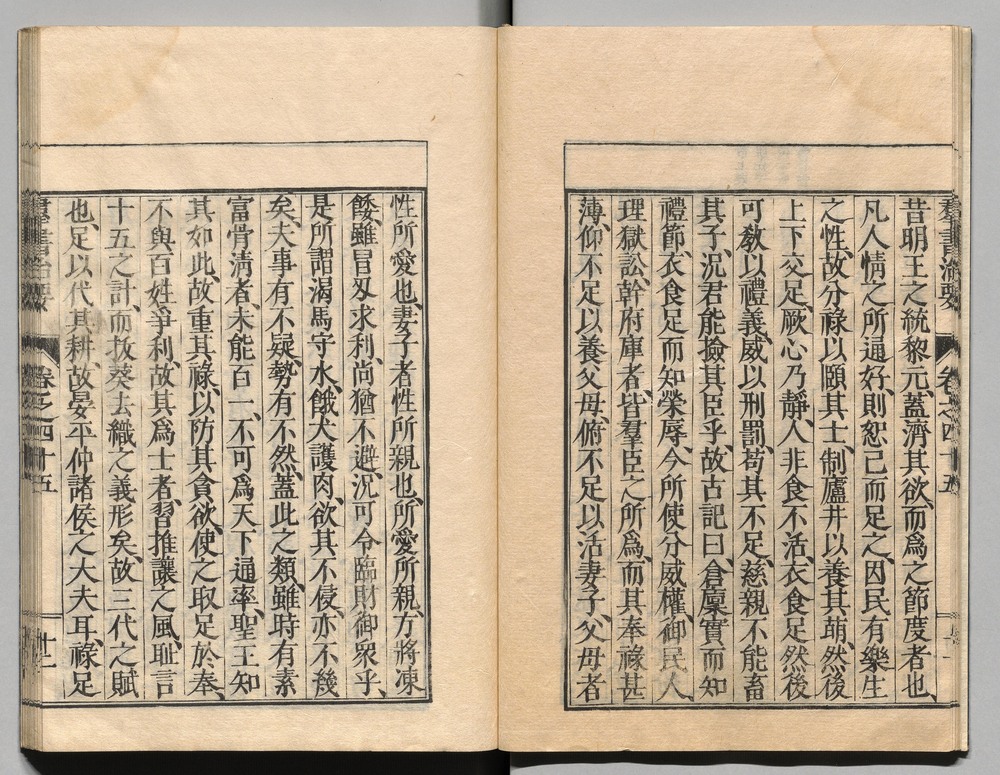 昔明王之統黎元、蓋濟其欲、而爲之節度者也、
凡人情之所通好、則恕己而足之、因民有樂生
之性、故分祿以頤其士、制廬井以養其萌、然後
上下交足、厥心乃靜、人非食不活、衣食足然後
可敎以禮義、威以刑罰、苟其不足、慈親不能畜
其子、況君能撿其臣乎、故古記曰、倉廩實而知
禮節、衣食足而知榮辱、今所使分威權、御民人、
理獄訟、幹府庫者、皆羣臣之所爲、而其奉祿甚
薄、仰不足以養父母、俯不足以活妻子、父母者
性所愛也、妻子者性所親也、所愛所親、方將凍
餒、雖冒刄求利、尚猶不避、況可令臨財御衆乎、
是所謂渴馬守水、餓犬護肉、欲其不侵、亦不幾
矣、夫事有不疑、勢有不然、蓋此之類、雖時有素
富骨清者、未能百一、不可爲天下通率、聖王知
其如此、故重其祿、以防其貪欲、使之取足於奉、
不與百姓爭利、故其爲士者、習推讓之風、耻言
十五之計、而拔葵去織之義形矣、故三代之賦
也、足以代其耕、故晏平仲諸侯之大夫耳、祿足
羣書治要
卷之四十五